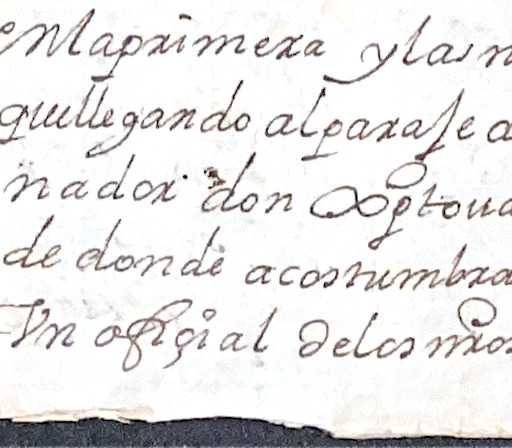 enlaprimera y las m
quellegando alparaje a
nador don Xpºtoua
de donde acostumbra
Un ofiçial delos mos